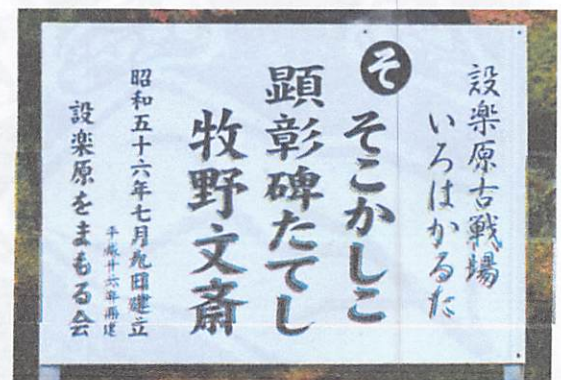 設楽原古戦場
いろはかるた
そ
そこかしこ
顕彰碑たてし
牧野文斎
昭和五十六年七月九日建立
平成廿六年再建
設楽原をまもる会